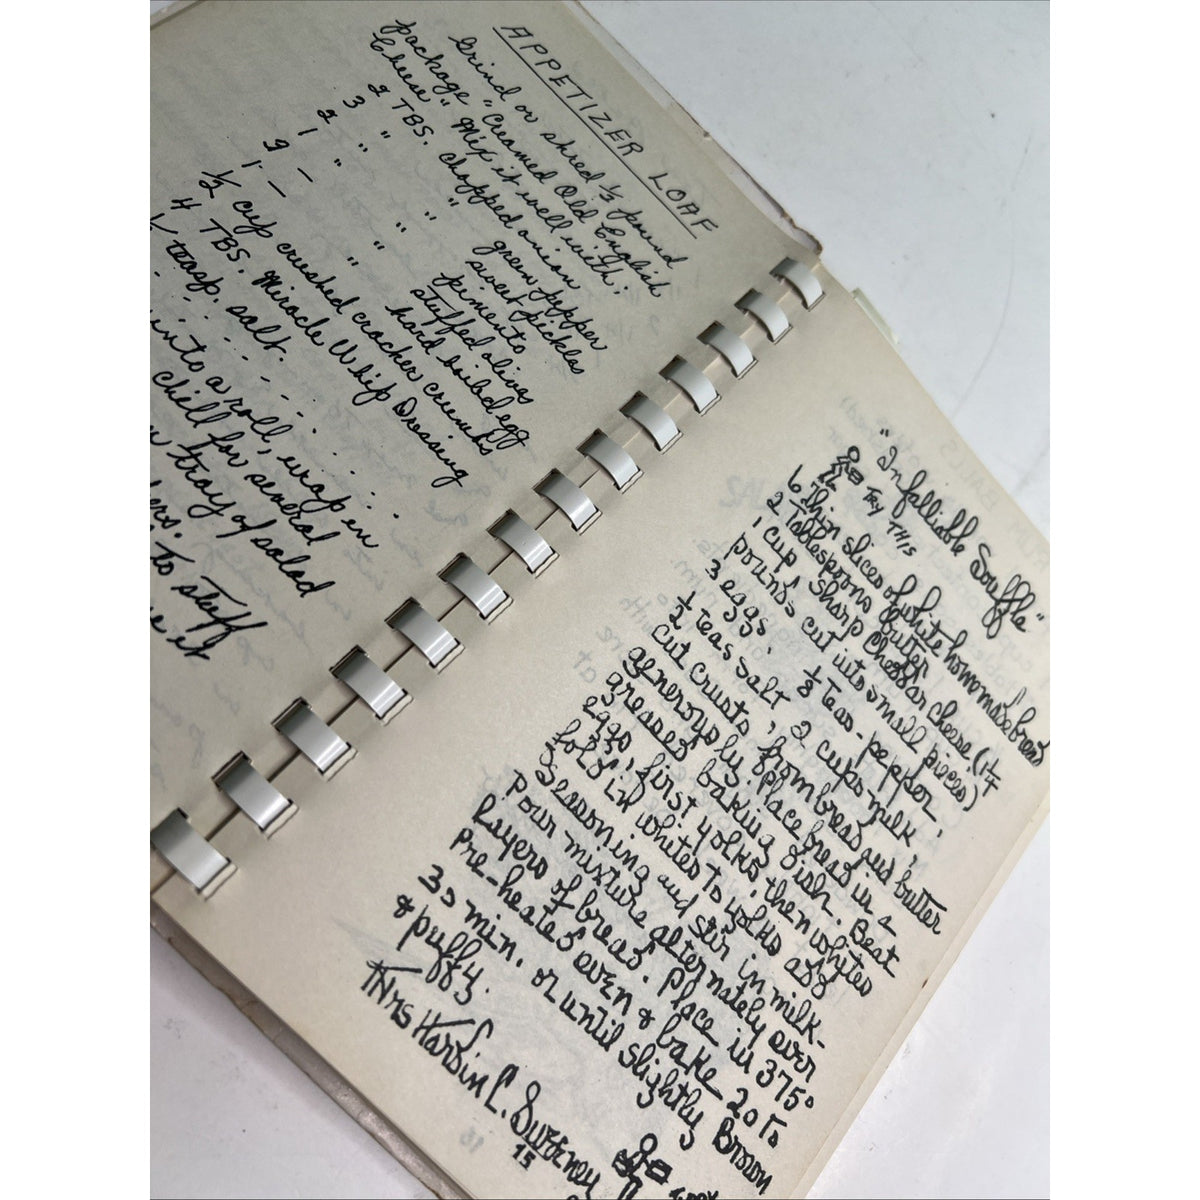 APPETIZER LOAF
Grind or shred 1/2 pound
package "Creamed Old English
Cheese" Mix it well with:
2 TBS. chopped onion
3 " " green pepper
2 " " sweet pickles
1 " " pimento
2 — " stuffed olives
1 — hard boiled egg
1/2 cup crushed cracker crumbs
4 TBS. Miracle Whip Dressing
teasp. salt.
into a roll, wrap in
chill for several
tray of salad
to stuff
it
"Infalliable Souffle"
TRY THIS
6 thin slices of white homemade bread
2 Tablespoons butter
1 cup sharp cheddar cheese (1/4
pounds cut into small pieces)
3 eggs, 1/8 Teas. pepper
1/2 Teas Salt, 2 cups milk.
Cut crusts from bread and butter
generously. Place bread in a
greased baking dish. Beat
eggs, first yolks, then whites
fold in whites to yolks add
Seasoning and stir in milk-
pour mixture alternately over
layers of bread. Place in 375°
Pre-heated oven & bake 20 to
30 min. or until slightly Brown
& puffy.
Mrs Hardin C. Sweeney
15